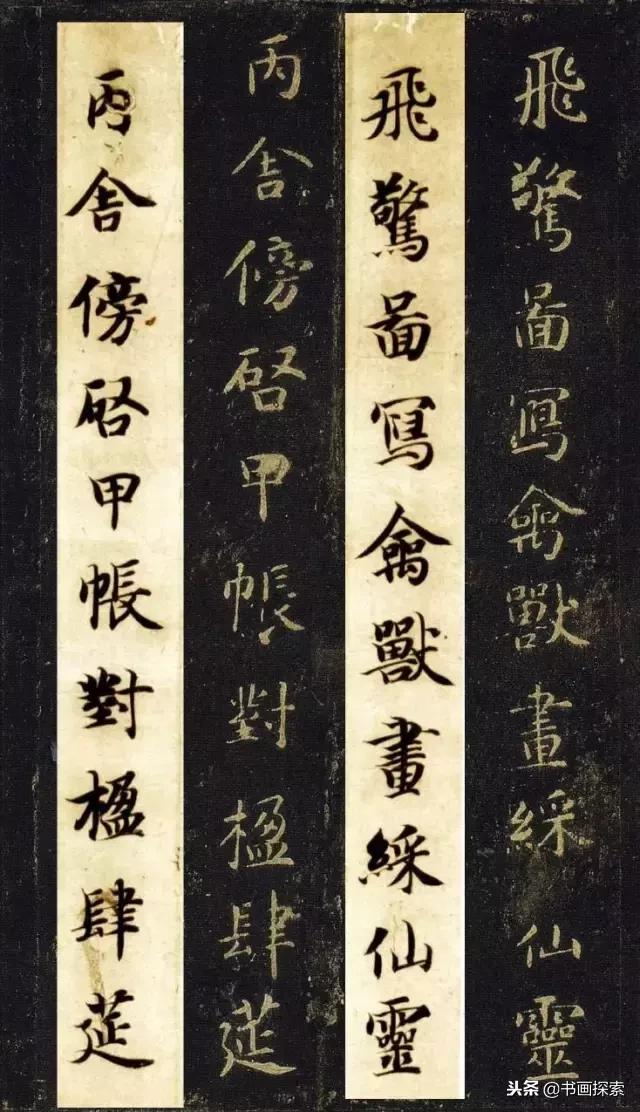 飛驚啚寫禽獸畫綵仙靈
飛驚啚寫禽獸畫綵仙靈
丙舍傍啓甲帳對楹肆莚
丙舍傍啓甲帳對楹肆莚
头条@书画探索